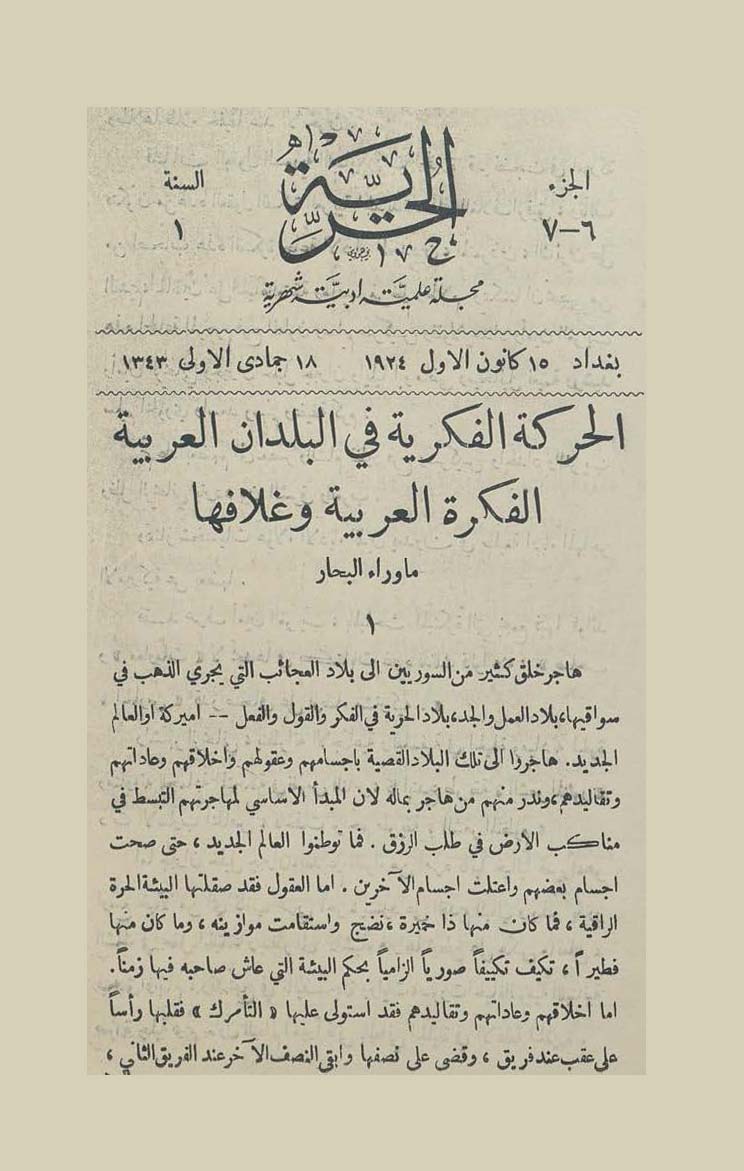 الجزء
٦-٧
الحرية
السنة
١
مجلة علمية ادبية شهرية
بغداد ١٥ كانون الاول ١٩٢٤ ١٨ جمادى الاولى ١٣٤٣
الحركة الفكرية في البلدان العربية
الفكرة العربية وغلافها
ماوراء البحار
١
هاجر خلق كثير من السوريين الى بلاد العجائب التي يجري الذهب في
سواقيها، بلاد العمل والجد، بلاد الحرية في الفكر والقول والفعل -- اميركة او العالم
الجديد. هاجروا الى تلك البلاد القصية باجسامهم وعقولهم واخلاقهم وعاداتهم
وتقاليدهم، وندر منهم من هاجر بماله لان المبدأ الاساسي لمهاجرتهم التبسط في
مناكب الارض في طلب الرزق. فما توطنوا العالم الجديد، حتى صحت
اجسام بعضهم واعتلت اجسام الآخرين. اما العقول فقد صقلتها البيئة الحرة
الراقية، فما كان منها ذا خميرة، نضج واستقامت موازينه، وما كان منها
فطيراً، تكيف تكييفاً صورياً الزامياً بحكم البيئة التي عاش صاحبه فيها زمناً.
اما اخلاقهم وعاداتهم وتقاليدهم فقد استولى عليها «التأمرك» فقلبها رأساً
على عقب عند فريق، وقضى على نصفها وابقى النصف الآخر عند الفريق الثاني،